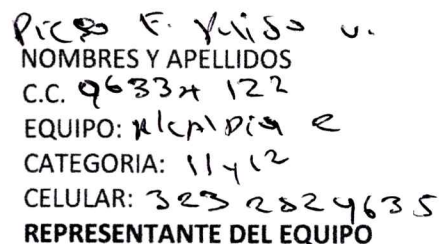 Diego F. Pulido v.
NOMBRES Y APELLIDOS
C.C. 96337122
EQUIPO: Alcaldia e
CATEGORIA: 11 y 12
CELULAR: 323 2824635
REPRESENTANTE DEL EQUIPO